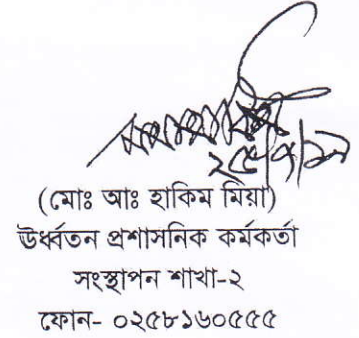 (মোঃ আঃ হাকিম মিয়া)
ঊর্ধ্বতন প্রশাসনিক কর্মকর্তা
সংস্থাপন শাখা-২
ফোন- ০২৫৮১৬০৫৫৫